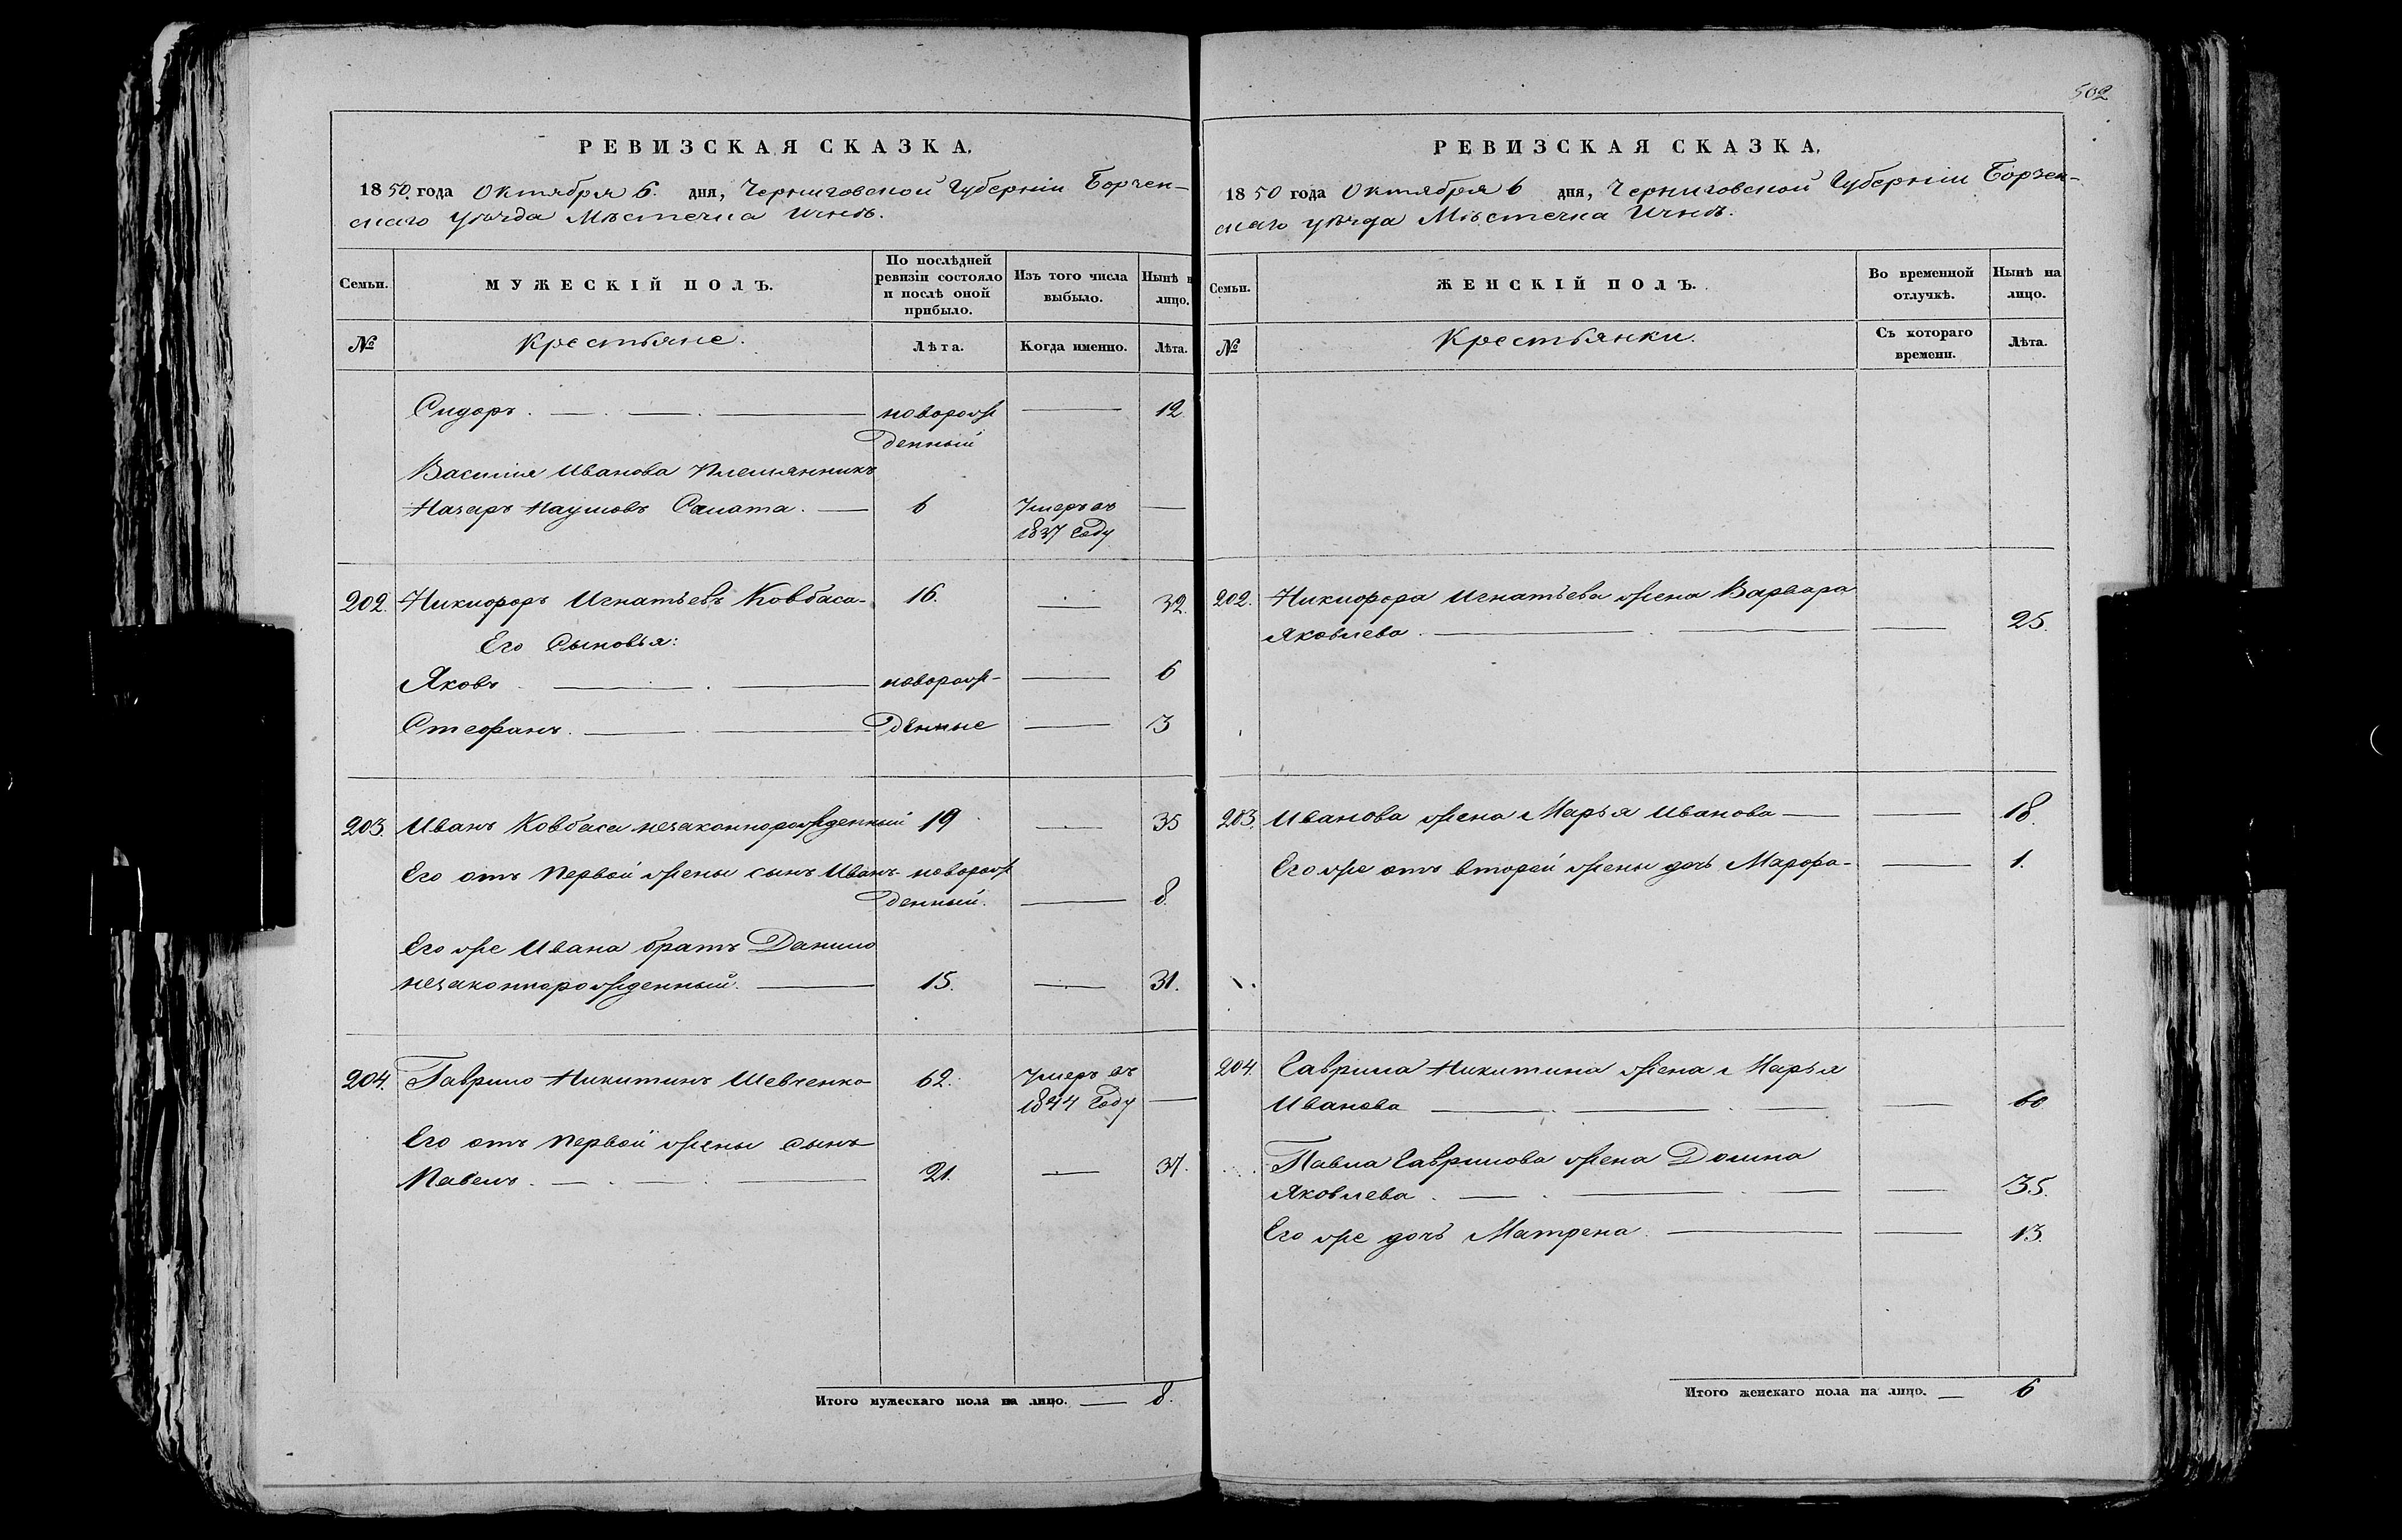 РЕВИЗСКАЯ СКАЗКА.
1850 года Октября 6. дня, Черниговской Губерніи Борзен-
скаго уѣзда Мѣстечка Ични.
Семьи.
МУЖЕСКІЙ ПОЛЪ.
По послѣдней
ревизіи состояло
и послѣ оной
прибыло.
Изъ того числа
выбыло.
Нынѣ н
лицо.
№
Крестьяне.
Лѣта.
Когда именно.
Лѣта.
Сидоръ. — новорож 12.
денный
Василія Иванова племянникъ
Назаръ Наумовъ Самота. — 6 Умеръ въ —
1837 Году
202. Никифоръ Игнатьевъ Ковбаса- 16. — 32.
Его Сыновья:
Яковъ — новорож- — 6
Стефанъ. — денные — 3
203. Иванъ Ковбаса незаконнорожденный 19 — 35
Его отъ первой жены сынъ Иванъ- новорож
денный. — 8.
Его же Ивана братъ Данило
незаконнорожденный. — 15. — 31.
204. Гаврило Никитинъ Шевченко 62. Умеръ въ
1844 Году —
Его отъ первой жены сынъ
Павелъ. — 21. — 37.
Итого мужескаго пола на лицо. — 8.
502
РЕВИЗСКАЯ СКАЗКА.
1850 года Октября 6 дня, Черниговской Губерніи Борзен-
скаго уѣзда Мѣстечка Ични.
Семьи.
ЖЕНСКІЙ ПОЛЪ.
Во временной
отлучкѣ.
Нынѣ на
лицо.
№
Крестьянки.
Съ котораго
времени.
Лѣта.
202. Никифора Игнатьева жена Варвара
Яковлева. — 25.
203. Иванова жена Марья Иванова — 18.
Его же отъ второй жены дочь Марфа- — 1.
204. Гаврила Никитина жена Марья
Иванова — 60
Павла Гаврилова жена Домна
Яковлева. — 35.
Его же дочь Матрена. — 13.
Итого женскаго пола на лицо. — 6